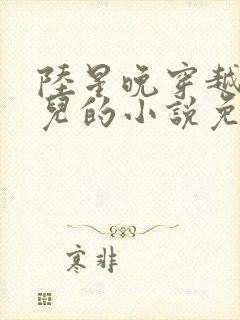 陸星晚穿越
兒的小說免
寒非